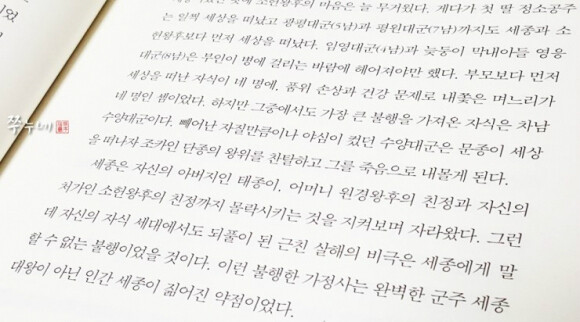 소헌왕후의 마음은 늘 무거웠다. 게다가 첫 딸 정소공주
는 일찍 세상을 떠났고 광평대군(5남)과 평원대군(7남)까지도 세종과 소
헌왕후보다 먼저 세상을 떠났다. 임영대군(4남)과 늦둥이 막내아들 영응
대군(8남)은 부인이 병에 걸리는 바람에 헤어져야만 했다. 부모보다 먼저
세상을 떠난 자식이 네 명에, 품위 손상과 건강 문제로 내쫓은 며느리가
네 명인 셈이었다. 하지만 그중에서도 가장 큰 불행을 가져온 자식은 차남
수양대군이다. 빼어난 자질만큼이나 야심이 컸던 수양대군은 문종이 세상
을 떠나자 조카인 단종의 왕위를 찬탈하고 그를 죽음으로 내몰게 된다.
세종은 자신의 아버지인 태종이, 어머니 원경왕후의 친정과 자신의
처가인 소헌왕후의 친정까지 몰락시키는 것을 지켜보며 자라왔다. 그런
데 자신의 자식 세대에서도 되풀이 된 근친 살해의 비극은 세종에게 말
할 수 없는 불행이었을 것이다. 이런 불행한 가정사는 완벽한 군주 세종
대왕이 아닌 인간 세종이 짊어진 약점이었다.
었다.
쭈누네